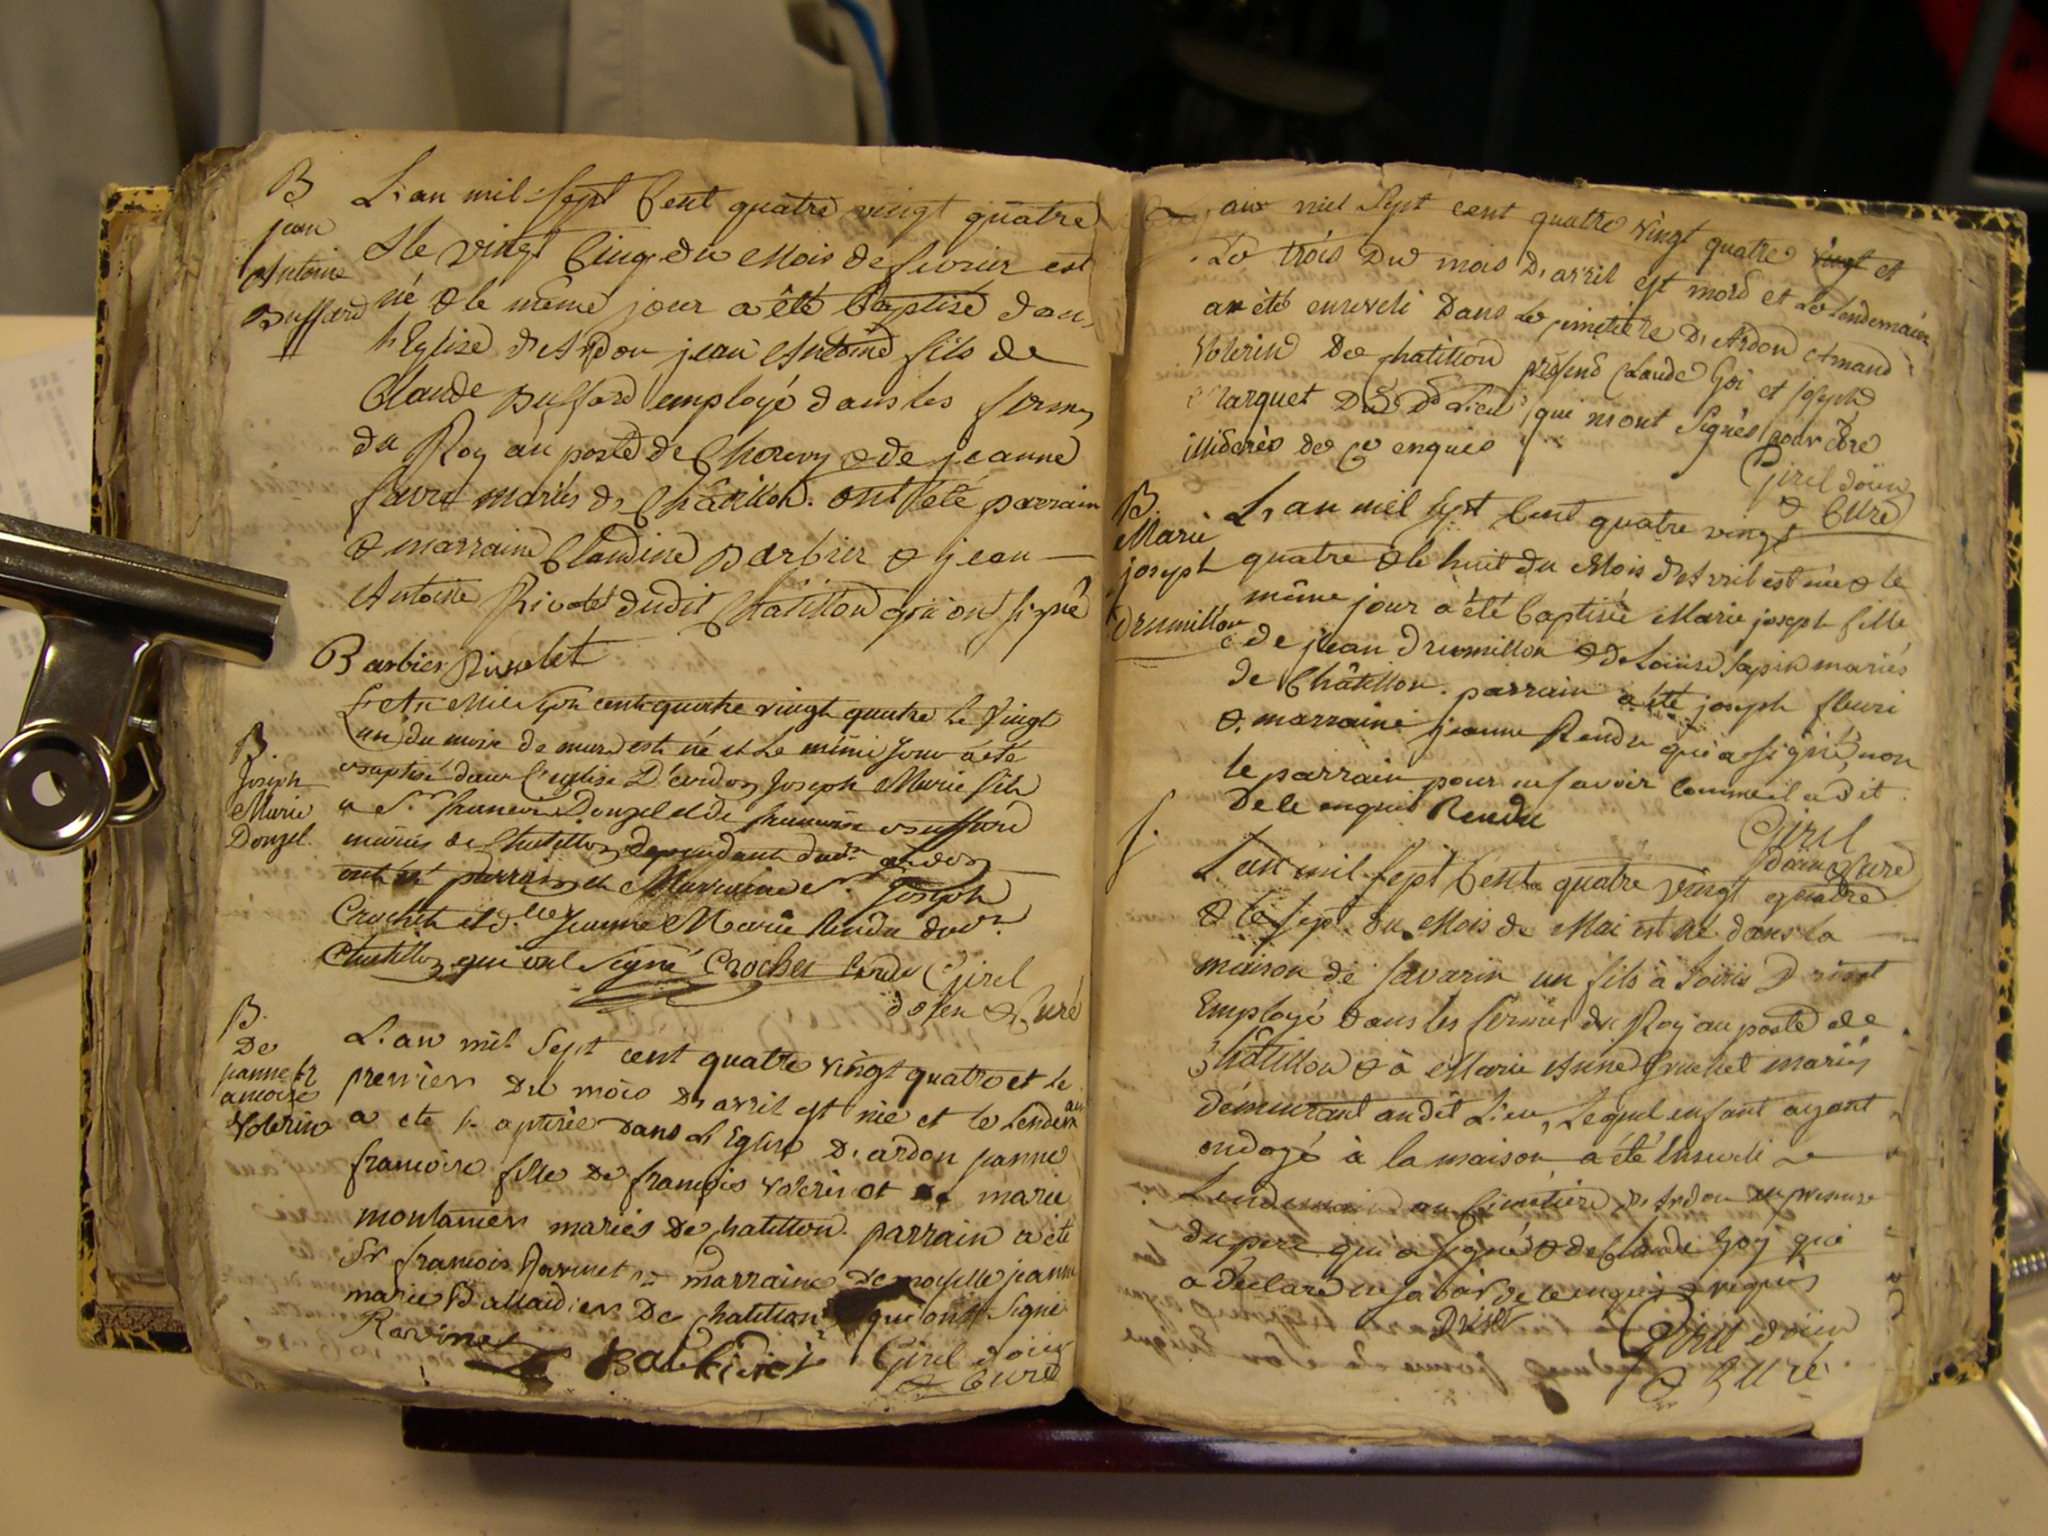 B
jean
Antoine
Buffard
L'an mil sept Cent quatre vingt quatre
& le vingt Cinq du Mois de fevrier est
né & le même jour a été Baptisé dans
l'Eglise d'Ardon jean Antoine fils de
Claude Buffard employé dans les fermes
du Roy au poste de & de jeanne
favre mariés de Châtillon. ont été parrain
& marraine Claudine Barbier & jean
Antoine dudit Chatillon qui ont signé
Barbier
B.
Joseph
Marie
Donzel.
L'An mil sept cent quatre vingt quatre le vingt
un du mois de mars est né et le même jour a été
baptisé dans l'eglise D'ardon Joseph Marie fils
a Sr. francois Donzel et de francoise Buffard
mariés de Chatillon dependant dud.
ont été parrain et Marraine Sr. Joseph
Crochet et dlle Jeanne Marie Rendu dud.
Chatillon qui ont signé Crochet Rendu Girel
doien & Curé
B.
De
janne fr
ancoise
Volerin
L'an mil sept cent quatre vingt quatre et le
premier du mois D'avril est née et le Lendem
ain
a ete baptisée Dans L'Eglise D'ardon janne
francoise fille de francois volerin et de marie
montanier mariés De chatillon. parrain a été
Sr francois Ravinet marraine demoiselle jeanne
marie De chatillon qui ont signé
Ravinet
Girel doien
& Curé
L'an mil sept cent quatre vingt quatre vingt et
Le trois Du mois D'avril est mord et Le Lendemain
a été enseveli Dans Le cimetière D'Ardon
Volerin De chatillon présend Claude Goi et joseph
Marquet Du Dd Lieu qui n'ont signés pour être
illiderés de ce enquis
Girel doien
& Curé
B.
Marie
joseph
Drumillon
L'an mil sept Cent quatre vingt
quatre & le huit du Mois d'Avril est née & le
même jour a été baptisée Marie joseph fille
de jean Drumillon & de Loüise Sapin mariés
de Châtillon. parrain a été joseph fleuri
& marraine jeanne Rendu qui a signé, non
le parrain pour ne savoir comme il a dit
De le enquis Rendu
Girel
doien & Curé
f.
L'an mil sept Cent quatre vingt quatre
& le sept du Mois de Mai est né dans la
maison de Savarin un fils à Loüis
Employé dans les fermes du Roy au poste de
Châtillon & à Marie Anne mariés
demeurant audit Lieu, Lequel enfant ayant
ondoyé à la maison a été Enseveli le
Lendemain au Cimetière D'Ardon en presence
du pere qui a signé & de Claude Goy qui
a déclaré ne savoir de le enquis & requis
Girel doien
& Curé